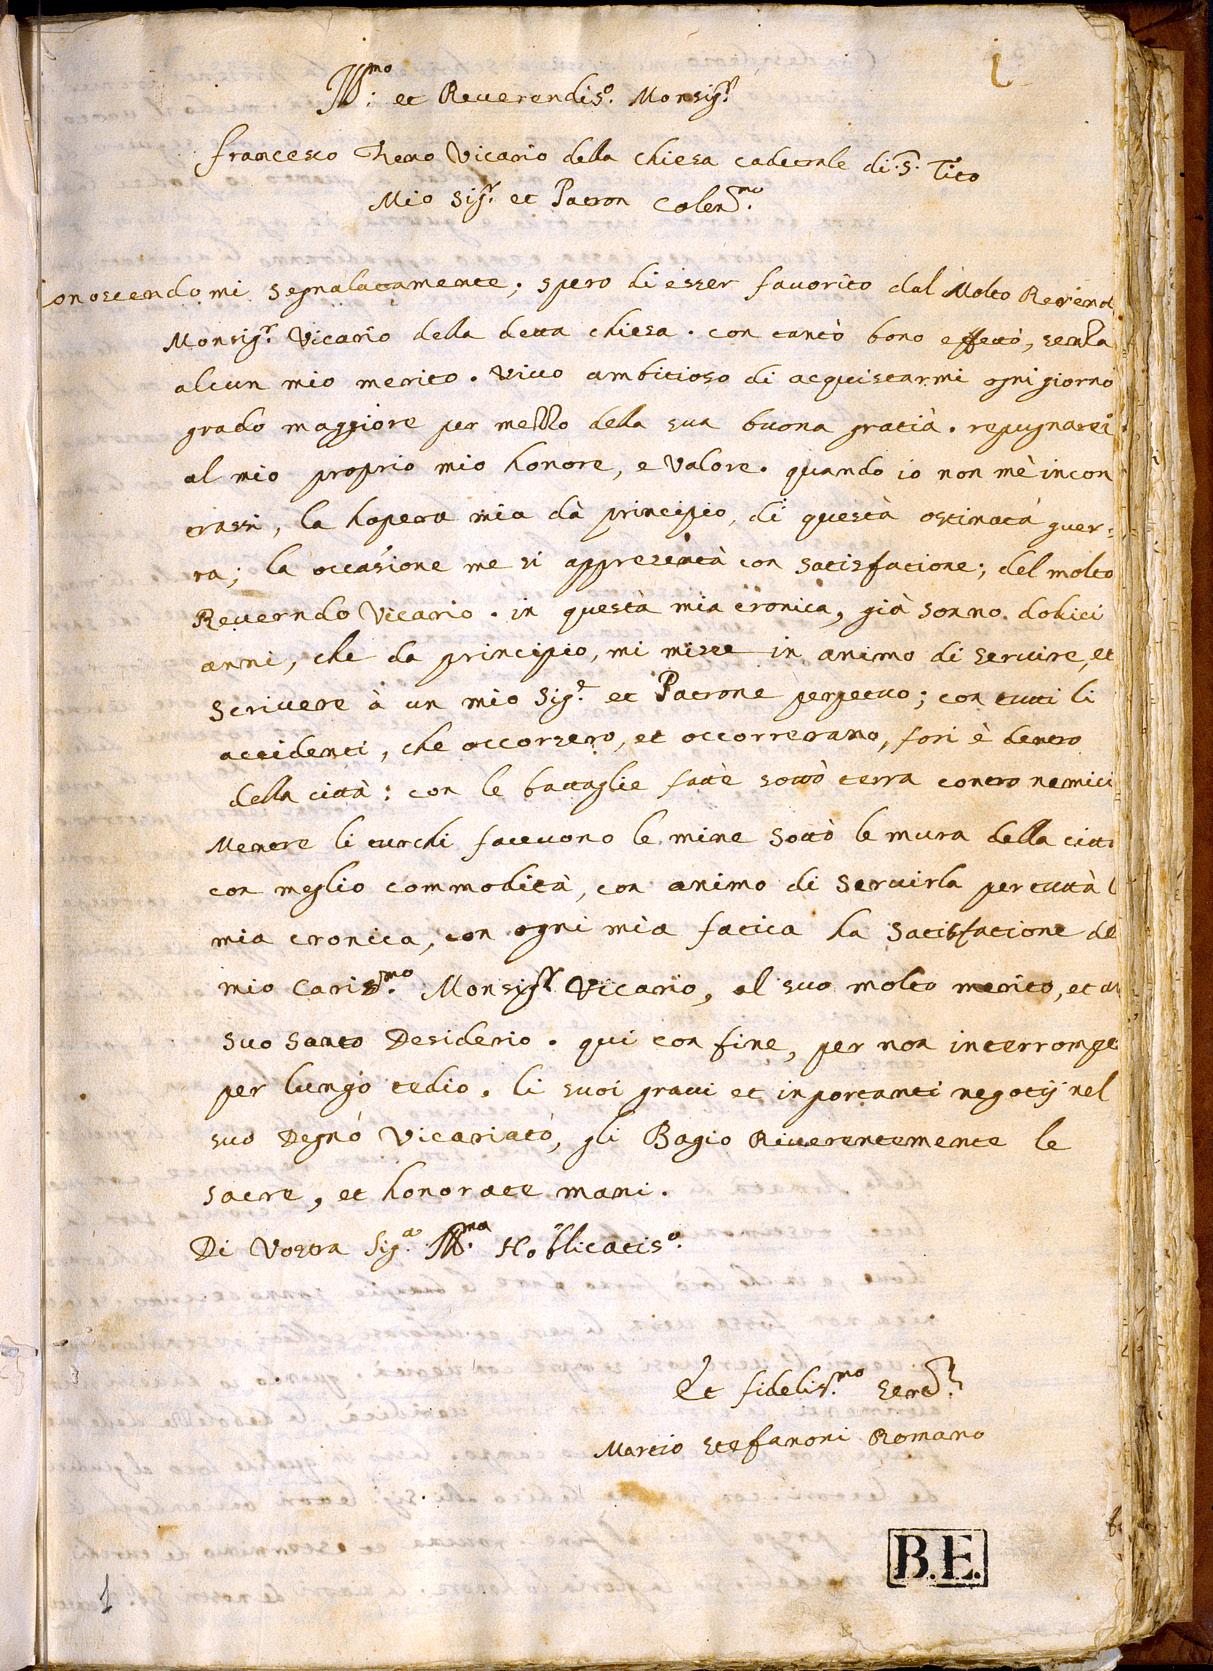 i
Ill.mo et Reuerendis.o Monsig.r
francesco Zeno Vicario della chiesa cadetrale di S. Tito
Mio Sig.r et Patron Colen.mo
onoscendomi segnalatamente, spero di esser fauorito dal Molto Reverend
Monsig.r Vicario della detta chiesa. con tantò bono effettò, senza
alcun mio merito. Viuo ambitioso di acquistarmi ogni giorno
grado maggiore per mezzo della sua buona gratià. repugnarei
al mio proprio mio honore, e valore. quando io non mè incon
trassi, la hopera mia dà principio, di questà ostinatà guer:
ra; la occasione me si appresentà con satisfatione; del molto
Reuerndo Vicario. in questà mia cronica, già sonno dodici
anni, che da principio, mi misce in animo di seruire, et
scriuere à un mio Sig.r et Patrone perpetuo; con tutti li
accidenti, che occorsero, et occorrerano, fori è dentro
della città: con le battaglie fattè sottò terra contro nemici
Mentre li turchi faceuono le mine sottò le mura della citt
con meglio commodità, con animo di seruirla per tuttà l
mia cronica, con ogni mia fatica la satisfatione del
mio Caris.mo Monsig.r Vicario, al suo molto merito, et al
suo santo Desiderio. qui con fine, per non interromper
per lungo tedio. li suoi graui et inportanti negotij nel
suo Degnò Vicariatò, gli Bagio Riuerentemente le
sacre, et honorate mani.
Di Vostra Sig.a Ill.ma Hobblicatis.o
Et fidelis.mo ser.
Martio Stefanoni Romano
B.E.
1